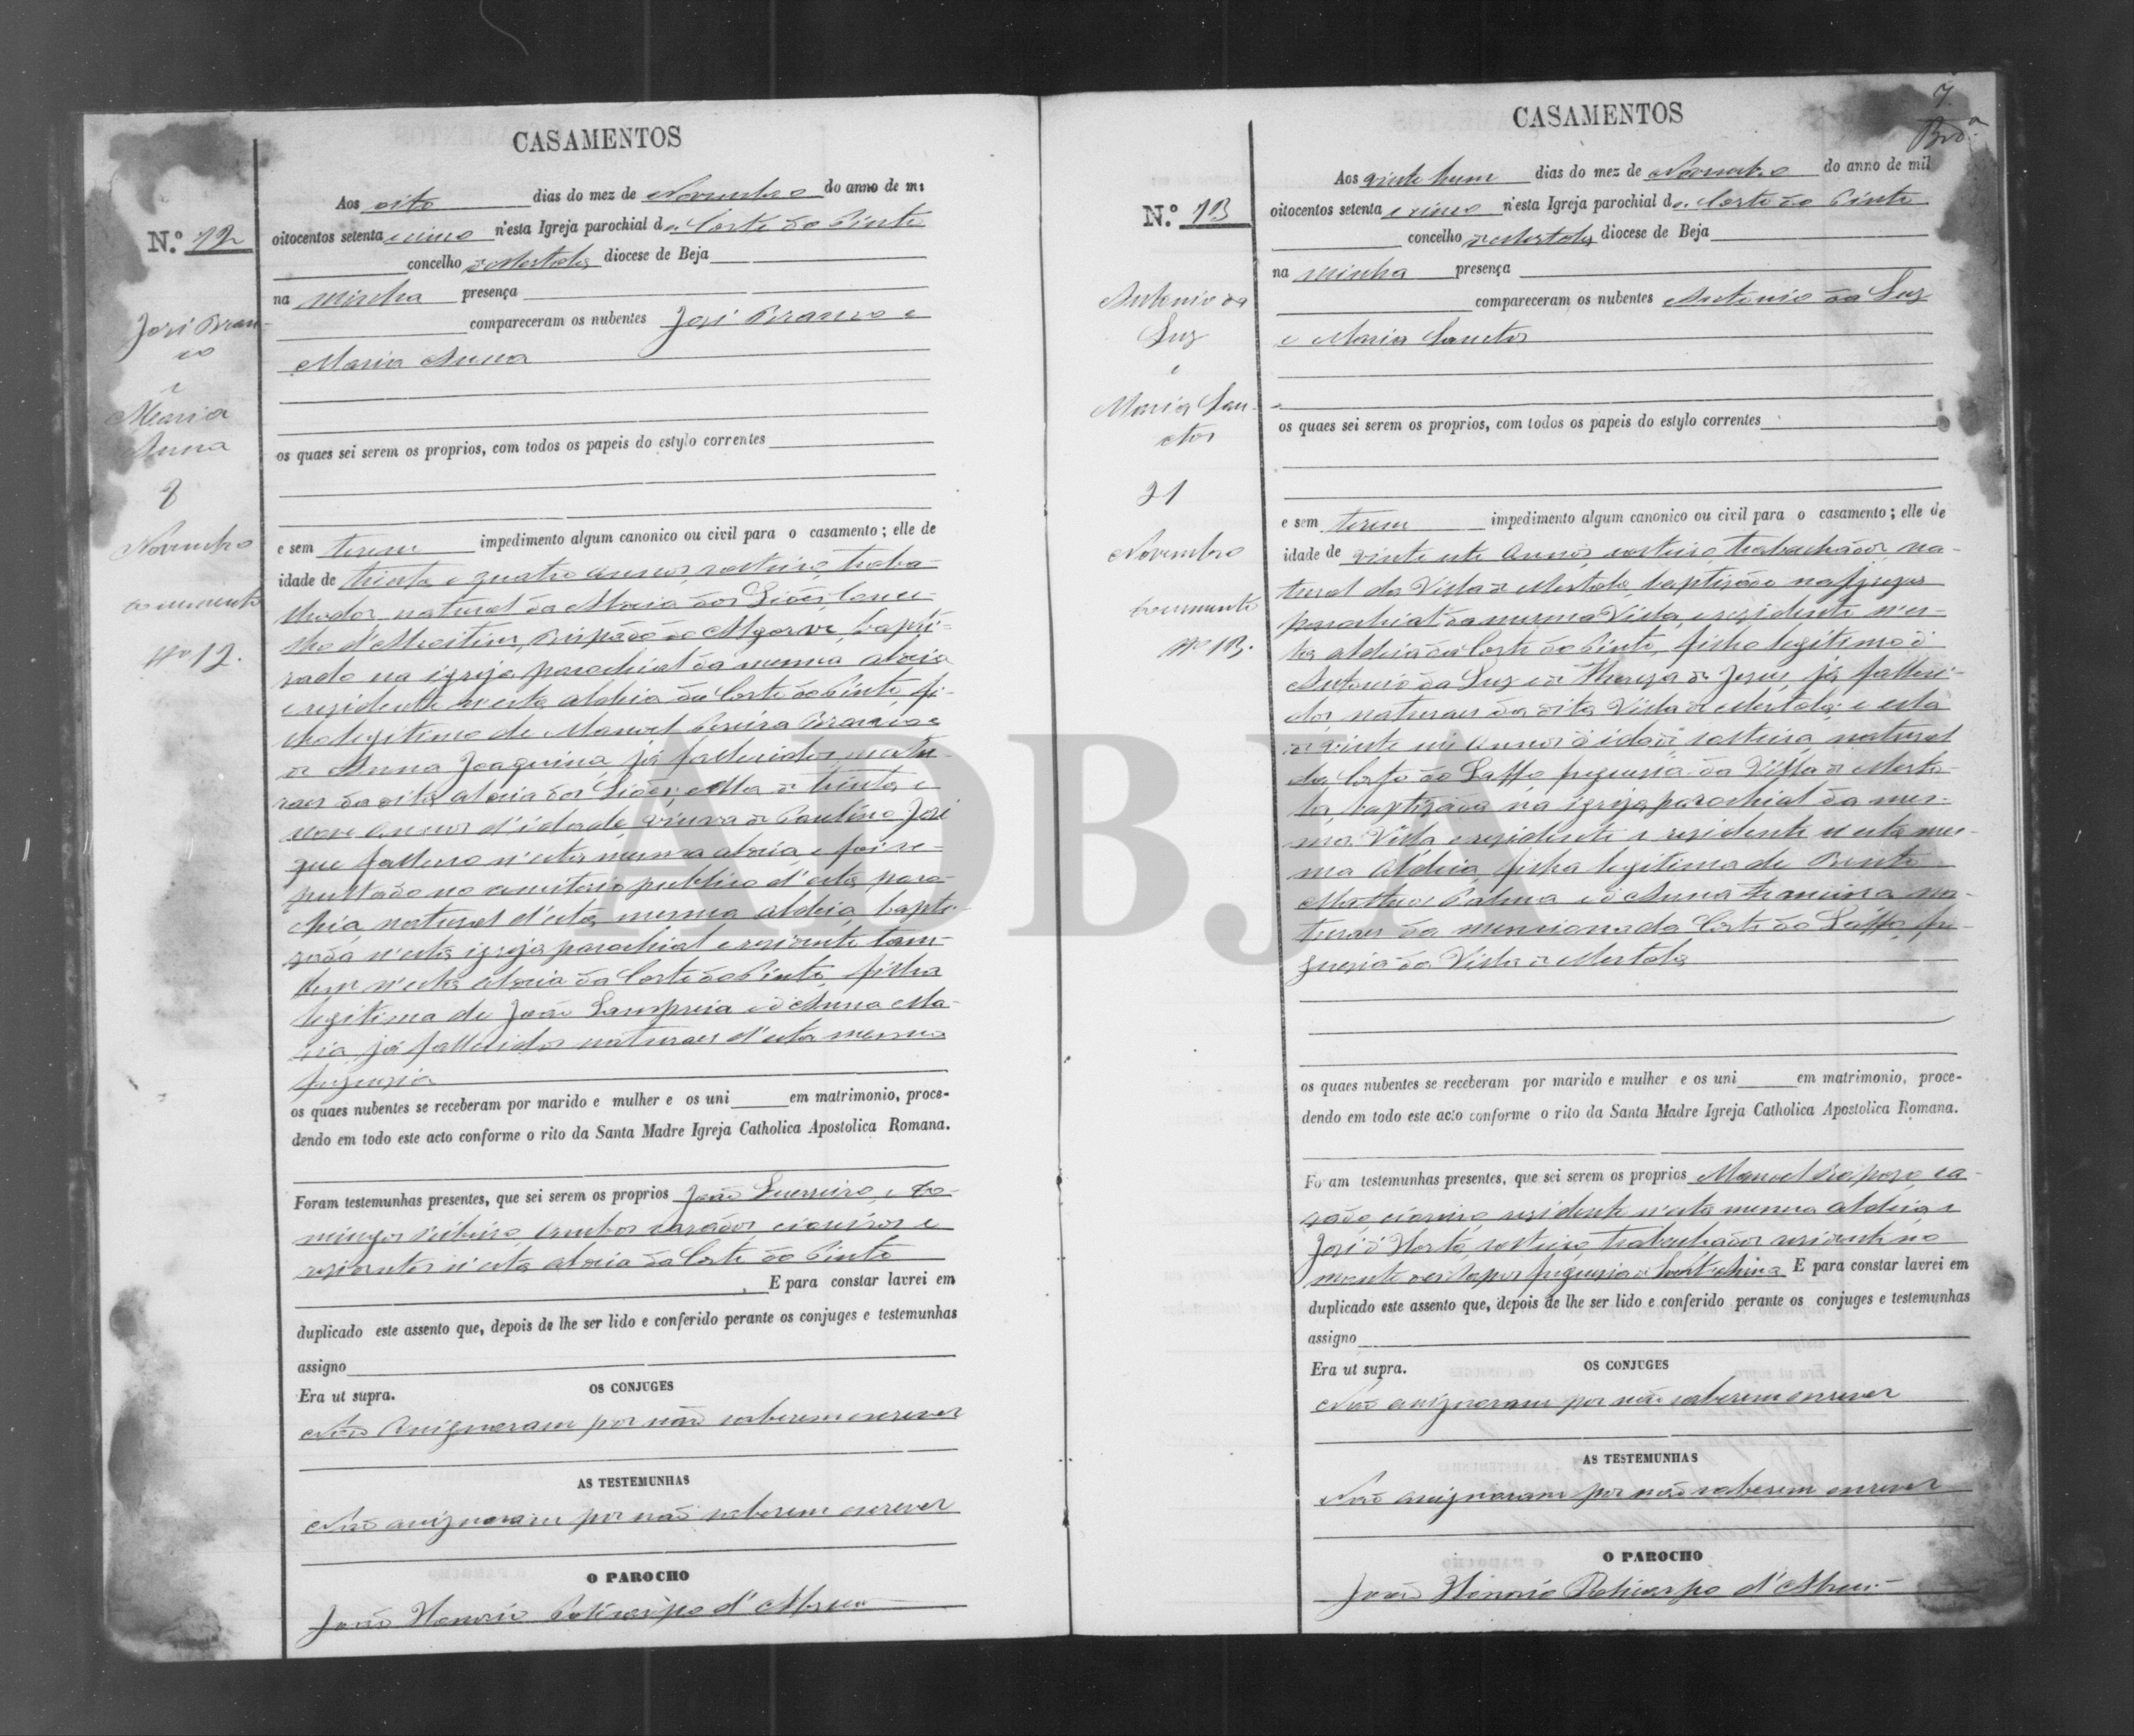 CASAMENTOS
N.º 12
José Bran-
co
e
Maria
Anna
8
Novembro
Documento
Nº 12.
Aos oito dias do mez de Novembro do anno de mi
oitocentos setenta e cinco n'esta Igreja parochial da Corte do Pinto
concelho de Mertola diocese de Beja
na minha presença
compareceram os nubentes José Branco e
Maria Anna
os quaes sei serem os proprios, com todos os papeis do estylo correntes
e sem terem impedimento algum canonico ou civil para o casamento; elle de
idade de trinta e quatro annos, solteiro, traba-
lhador, natural da Aldeia dos conce-
lho d' Bispado do Algarve, bapti-
zado na igreja parochial da mesma aldeia
e residente n'esta aldeia da Corte do Pinto, fi-
lho legitimo de Manoel Branco e
de Anna Joaquina, já fallecidos, natu-
raes da dita aldeia dos ella de trinta e
nove annos d'idade, viuva de Paulino José
que falleceo n'esta mesma aldeia e foi se-
pultado no cemiterio publico d'esta paro-
chia, natural d'esta mesma aldeia, bapti-
zada n'esta igreja parochial e residente tam-
bem n'esta aldeia da Corte do Pinto, filha
legitima de João Lampreia e de Anna Ma-
ria, já fallecidos naturaes d'esta mesma
freguesia
os quaes nubentes se receberam por marido e mulher e os uni em matrimonio, proce-
dendo em todo este acto conforme o rito da Santa Madre Igreja Catholica Apostolica Romana.
Foram testemunhas presentes, que sei serem os proprios João Guerreiro, e Do-
mingos Ribeiro, ambos casados, e
residentes n'esta aldeia da Corte do Pinto
E para constar lavrei em
duplicado este assento que, depois de lhe ser lido e conferido perante os conjuges e testemunhas
assigno
Era ut supra.
OS CONJUGES
Não assignaram por não saberem escrever
AS TESTEMUNHAS
Não assignaram por não saberem escrever
O PAROCHO
João Honorio Policarpo d'Abreu
7
CASAMENTOS
N.º 13
Antonio da
Luz
e
Maria San-
ctos
21
Novembro
Documento
Nº 13.
Aos vinte hum dias do mez de Novembro do anno de mil
oitocentos setenta e cinco n'esta Igreja parochial da Corte do Pinto
concelho de Mertola diocese de Beja
na minha presença
compareceram os nubentes Antonio da Luz
e Maria Sanctos
os quaes sei serem os proprios, com todos os papeis do estylo correntes
e sem terem impedimento algum canonico ou civil para o casamento; elle de
idade de vinte annos, solteiro, trabalhador, na-
tural da Villa de Mertola, baptizado na Igreja
parochial da mesma Villa, e residente n'es-
ta aldeia da Corte do Pinto, filho legitimo d'
Antonio da Luz e de Thereza de Jesus, já falleci-
dos, naturaes da dita Villa de Mertola; e ella
de vinte annos d'idade, solteira, natural
da Corte do freguesia da Villa de Merto-
la, baptizada na igreja parochial da mes-
ma Villa e residente e residente n'esta mes-
ma Aldeia, filha legitima de Bento
Palma e d'Anna Francisca na-
turaes da mencionada Corte do fre-
guesia da Villa de Mertola
os quaes nubentes se receberam por marido e mulher e os uni em matrimonio, proce-
dendo em todo este acto conforme o rito da Santa Madre Igreja Catholica Apostolica Romana.
Foram testemunhas presentes, que sei serem os proprios Manoel Raposo ca-
sado, residente n'esta mesma aldeia e
José d'Horta, solteiro, trabalhador residente no
monte freguesia de E para constar lavrei em
duplicado este assento que, depois de lhe ser lido e conferido perante os conjuges e testemunhas
assigno
Era ut supra.
OS CONJUGES
Não assignaram por não saberem escrever
AS TESTEMUNHAS
Não assignaram por não saberem escrever
O PAROCHO
João Honorio Policarpo d'Abreu
ADBJA